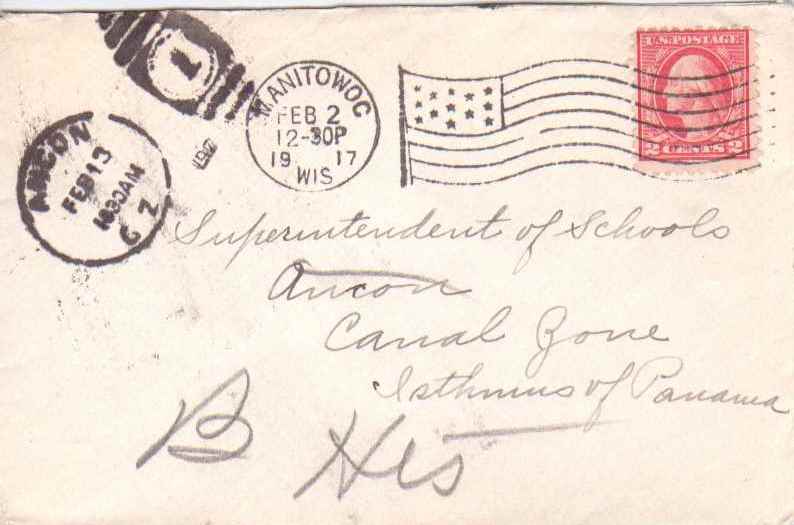 1
MANITOWOC
FEB 2
12-30P
19 17
WIS
U.S. POSTAGE
2 CENTS 2
ANCON
FEB 13
1030AM
C Z
Superintendent of Schools
Ancon
Canal Zone
Isthmus of Panama
B